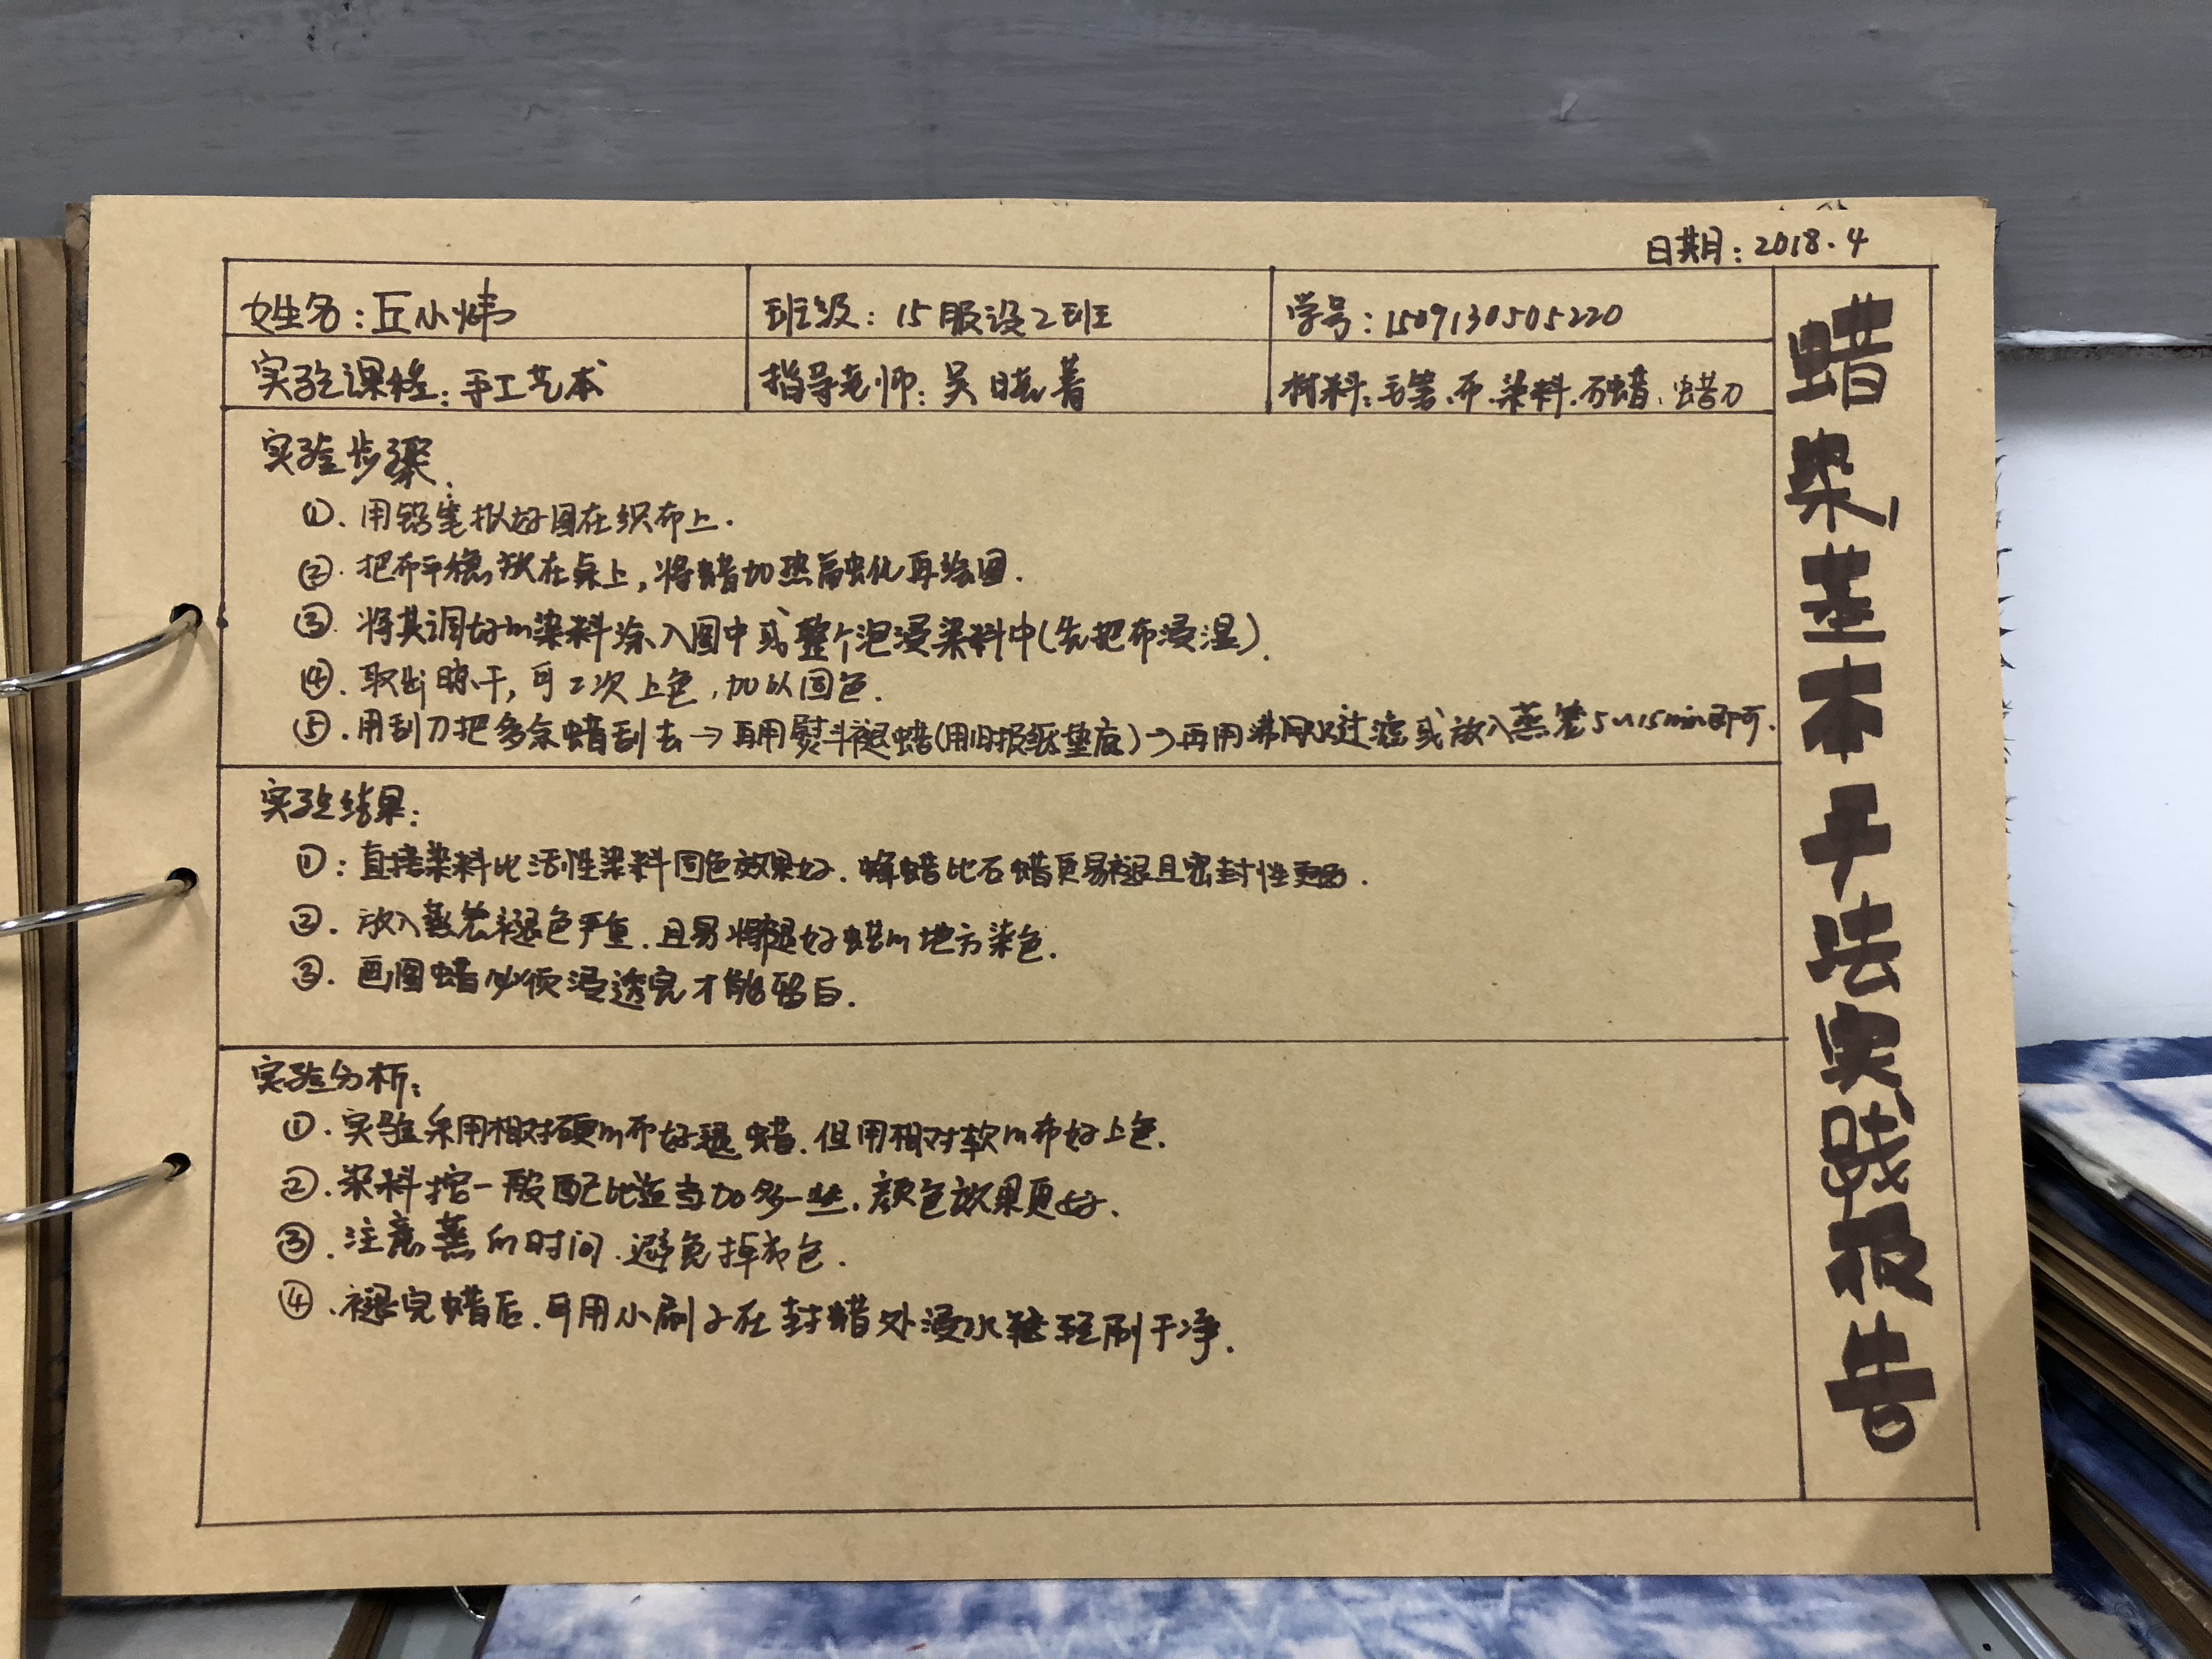 日期：2018.4
姓名：丘小炜
班级：15服设2班
学号：1509130505220
实验课程：手工艺术
指导老师：吴晓菁
材料：毛笔.布.染料.石蜡.蜡刀
蜡染基本手法实践报告
实验步骤：
①.用铅笔拟好图在织布上.
②.把布平稳放在桌上，将蜡加热融化再绘图.
③.将其调好的染料涂入图中或整个泡浸染料中(先把布浸湿).
④.取出晾干，可2次上色，加以固色.
⑤.用刮刀把多余蜡刮去→再用熨斗褪蜡(用旧报纸垫底)→再用沸水过滤或放入蒸笼5~15min即可.
实验结果：
①：直接染料比活性染料固色效果好.蜂蜡比石蜡更易褪且密封性更.
②.放入蒸笼褪色严重.且易将褪好蜡的地方染色.
③.画图蜡必须浸透完才能留白.
实验分析：
①.实验采用相对硬的布好褪蜡.但用相对软的布好上色.
②.染料按一般配比适当加多一些.颜色效果更好.
③.注意蒸的时间.避免掉色.
④.褪完蜡后.可用小刷子在封蜡处浸水轻刷干净.